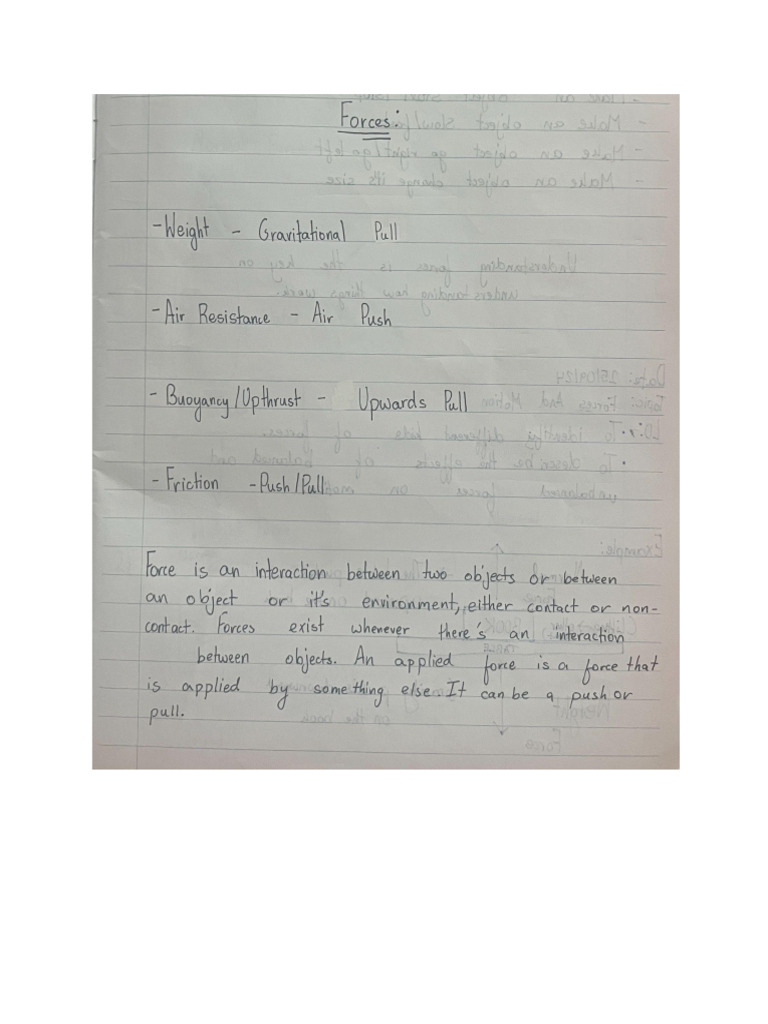 Forces:
- Weight - Gravitational Pull
- Air Resistance - Air Push
- Buoyancy/Upthrust - Upwards Pull
- Friction - Push/Pull
Force is an interaction between two objects or between
an object or it's environment, either contact or non-
contact. Forces exist whenever there's an interaction
between objects. An applied force is a force that
is applied by something else. It can be a push or
pull.